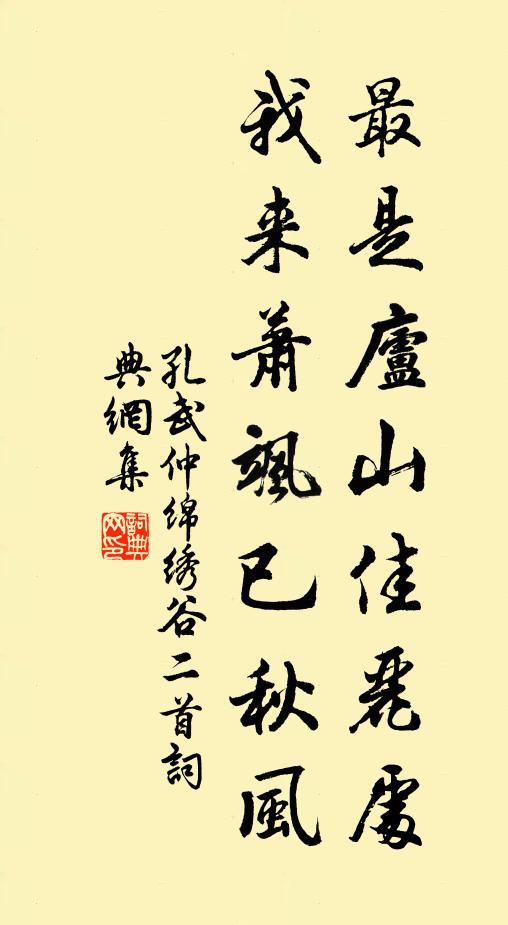 最是廬山佳麗處
我来蕭颯已秋風
孔武仲绵绣谷二首詞
典網集
詞典
网印